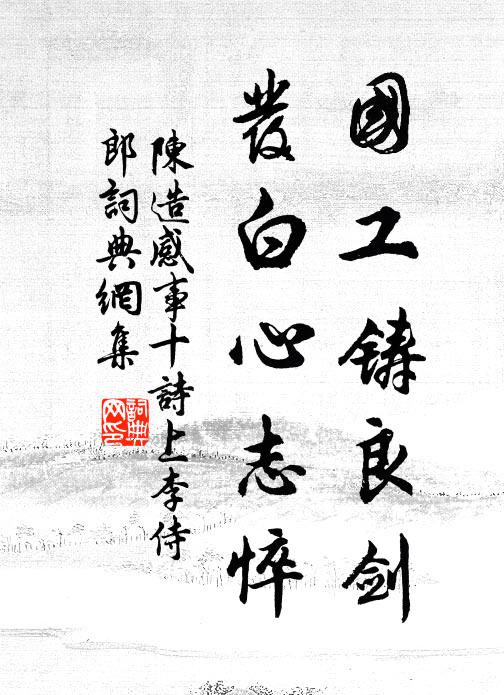 國工鑄良劍
發白心志悴
陳造感事十詩上李侍
郎詞典網集
詞典
网印